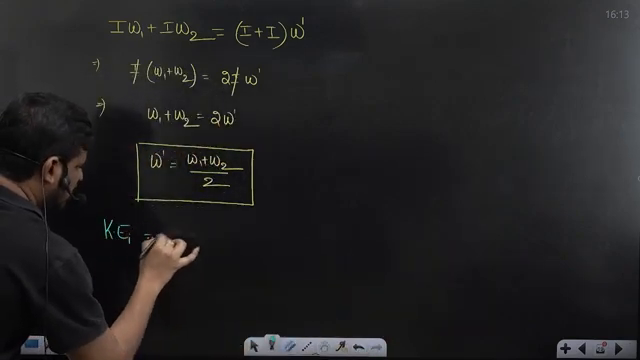 16:13
Iω₁ + Iω₂ = (I + I) ω'
⇒ I (ω₁+ω₂) = 2I ω'
⇒ ω₁ + ω₂ = 2ω'
ω' = (ω₁+ω₂)/2
K.Eᵢ =